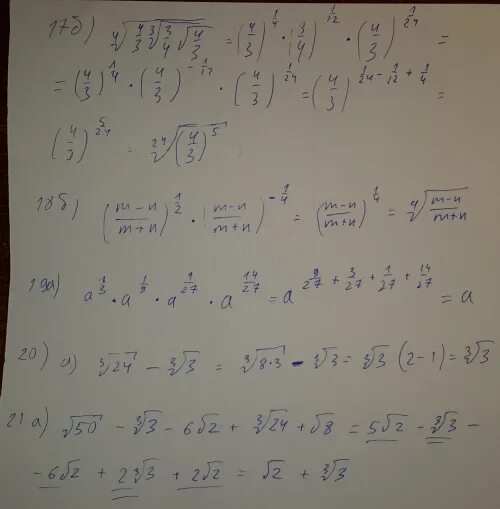 17б) ∜(4/3 ∛(3/4 √(4/3))) = (4/3)^(1/4) · (3/4)^(1/12) · (4/3)^(1/24) =
= (4/3)^(1/4) · (4/3)^(-1/12) · (4/3)^(1/24) = (4/3)^(1/24 - 1/12 + 1/4) =
(4/3)^(5/24) = ²⁴√((4/3)^5)
18б) ((m-n)/(m+n))^(1/2) · ((m-n)/(m+n))^(-1/4) = ((m-n)/(m+n))^(1/4) = ∜((m-n)/(m+n))
19а) a^(1/3) · a^(1/9) · a^(1/27) · a^(14/27) = a^(9/27 + 3/27 + 1/27 + 14/27) = a
20) а) ∛24 - ∛3 = ∛(8·3) - ∛3 = ∛3 (2-1) = ∛3
21 а) √50 - ∛3 - 6√2 + ∛24 + √8 = 5√2 - ∛3 -
- 6√2 + 2∛3 + 2√2 = √2 + ∛3